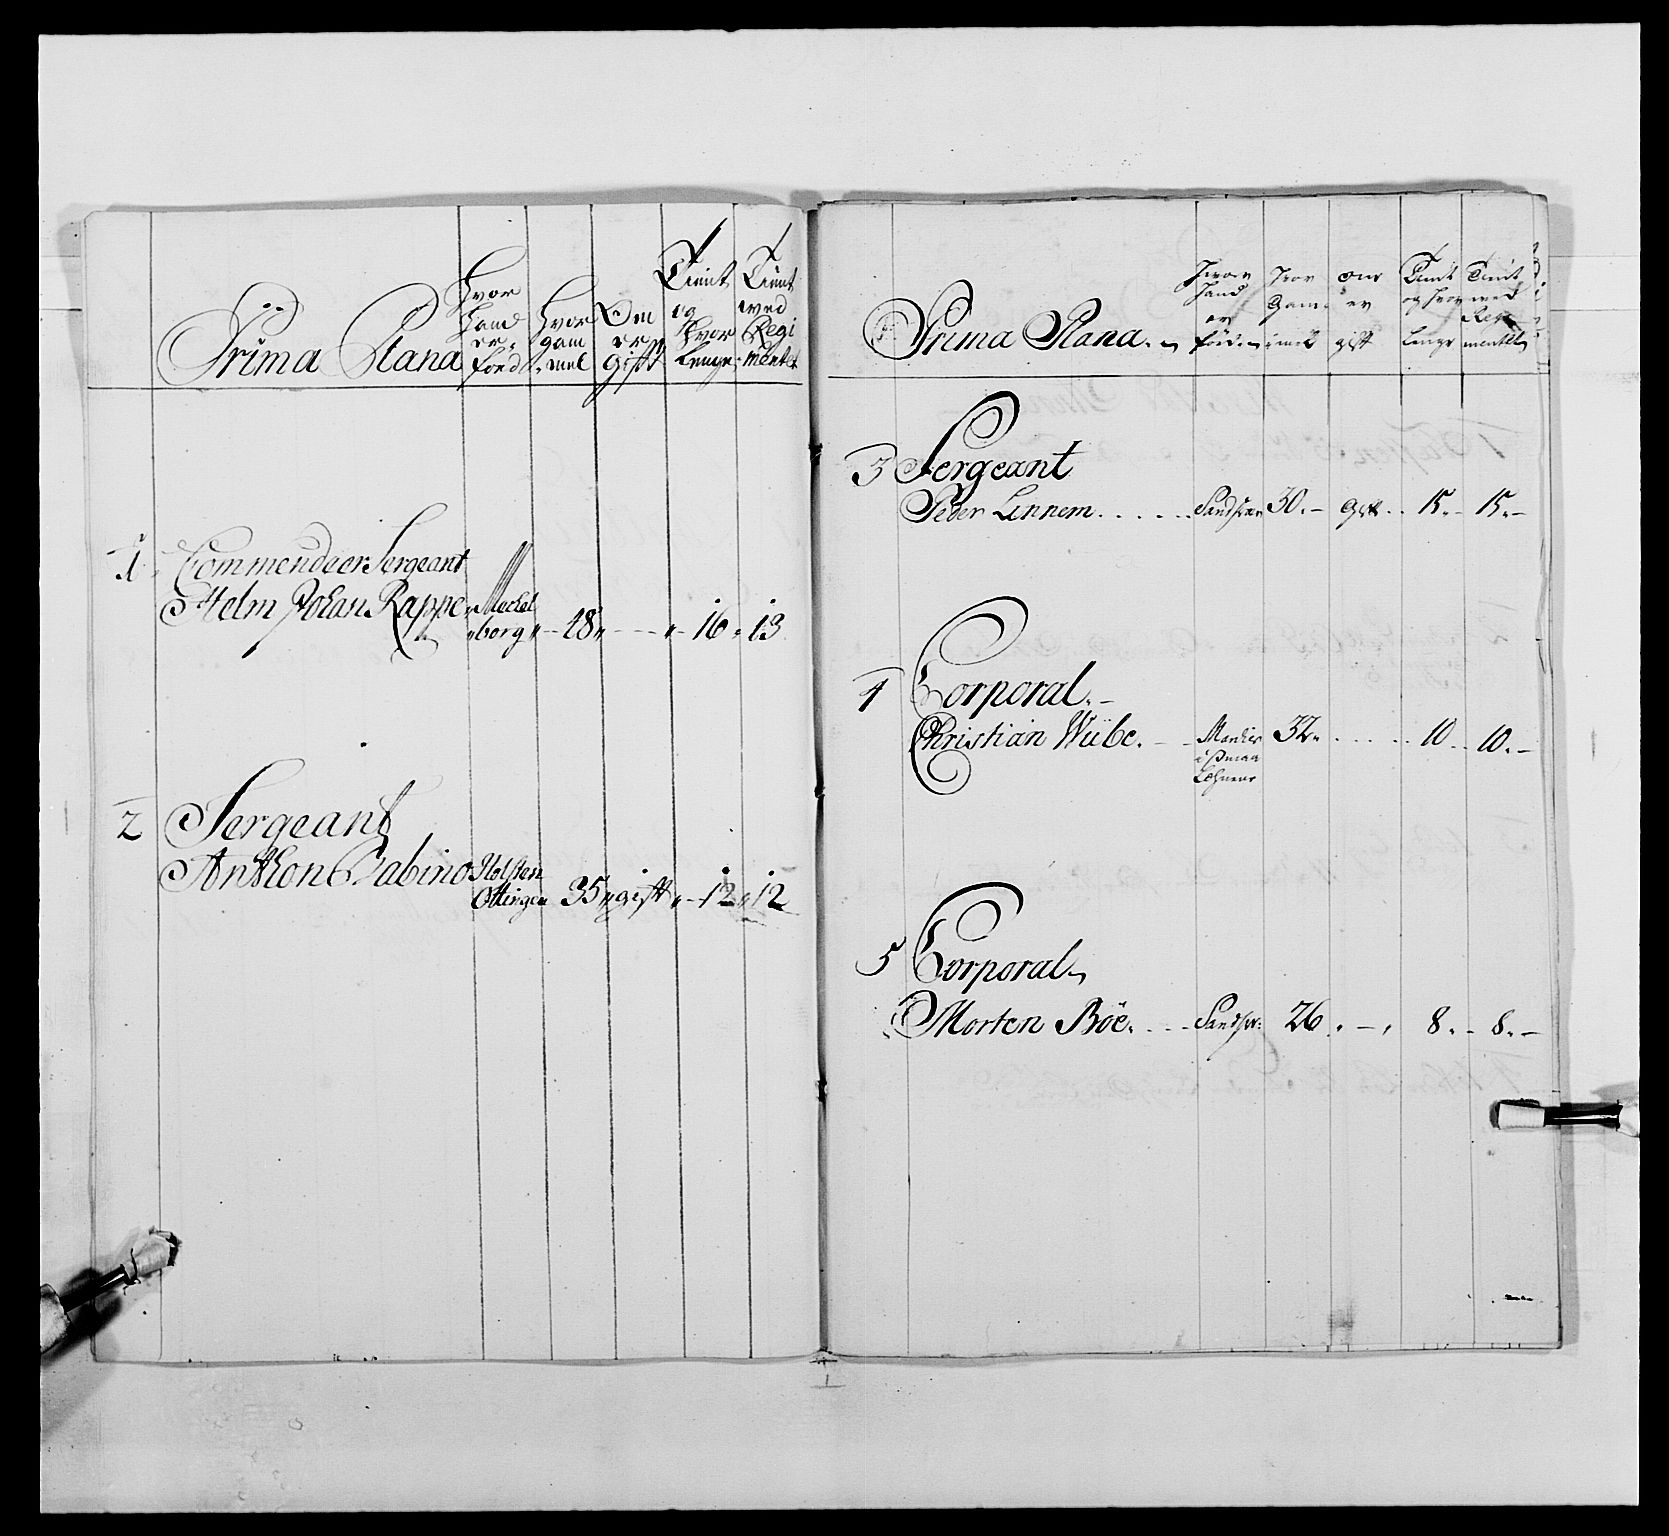 Prima Plana
Hvor
hand
er
fönd
Hvor
gam
mel
Om
er
Gift
Tient
og
hvor
lenge
Tient
ved
Regi
mentet
1 Commendeer Sergeant
Helm Johan Rappe Meckel
borg 48 16 13
2 Sergeant
Anthoni Sabino Holsten
Ottingen 35 gift 12 12
Prima Plana
Hvor
hand
er
föd
Hvor
Gam
mel
om
er
gift
Tient
og hvor
lenge
Tient
ved
Regi
mentet
3 Sergeant
Peder Linnem 30 Gift 15 15
4 Corporal
Christian Wiibe 32 10 10
5 Corporal
Morten Böe 26 8 8